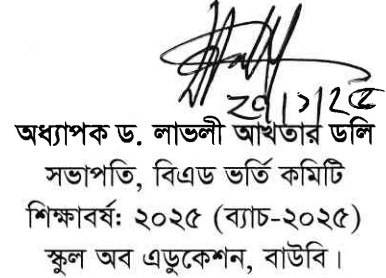 ২৭|১|২৫
অধ্যাপক ড. লাভলী আখতার ডলি
সভাপতি, বিএড ভর্তি কমিটি
শিক্ষাবর্ষ: ২০২৫ (ব্যাচ-২০২৫)
স্কুল অব এডুকেশন, বাউবি।